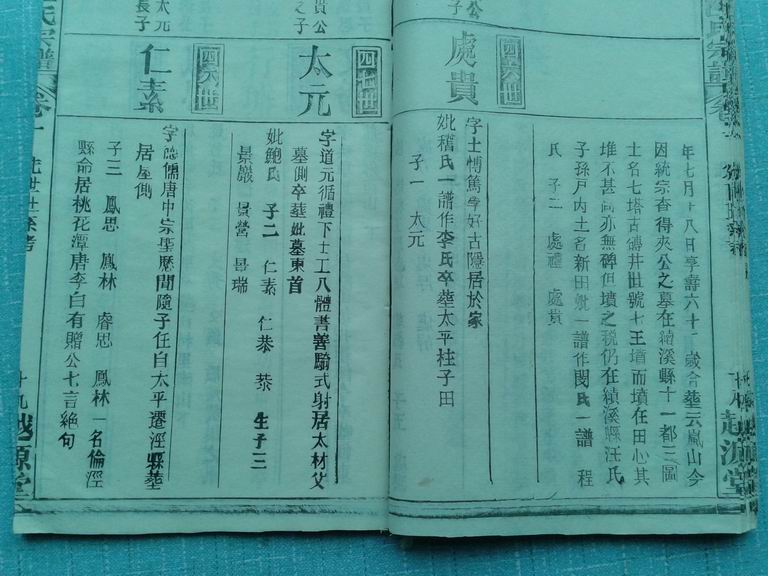 年七月十八日享壽六十七歲合葬云嵐山今
因統宗查得夾公之墓在績溪縣十一都三圖
土名七塔古磚井世號七王墳而墳在田心其
堆不甚高亦無碑但墳之稅仍在績溪縣汪氏
子孫戶內土名新田妣一譜作閔氏一譜 程
氏 子二 處禮 處貴
四六世
處貴
字士博篤學好古隱居於家
妣稽氏一譜作李氏卒葬太平柱子田
子一 太元
貴公
之子
四七世
太元
字道元循禮下士工八體書善騎式射居太材父
墓側卒葬妣墓東首
妣鮑氏 子二 仁素 仁恭 恭 生子三
景巖 景營 景瑞
太元
長子
四八世
仁素
字 儒唐中宗聖歷間隨子任自太平遷涇縣葬
居屋側
子三 鳳思 鳳林 睿思 鳳林一名倫涇
縣命居桃花潭唐李白有贈公七言絕句
氏宗譜
卷
十九
越源堂